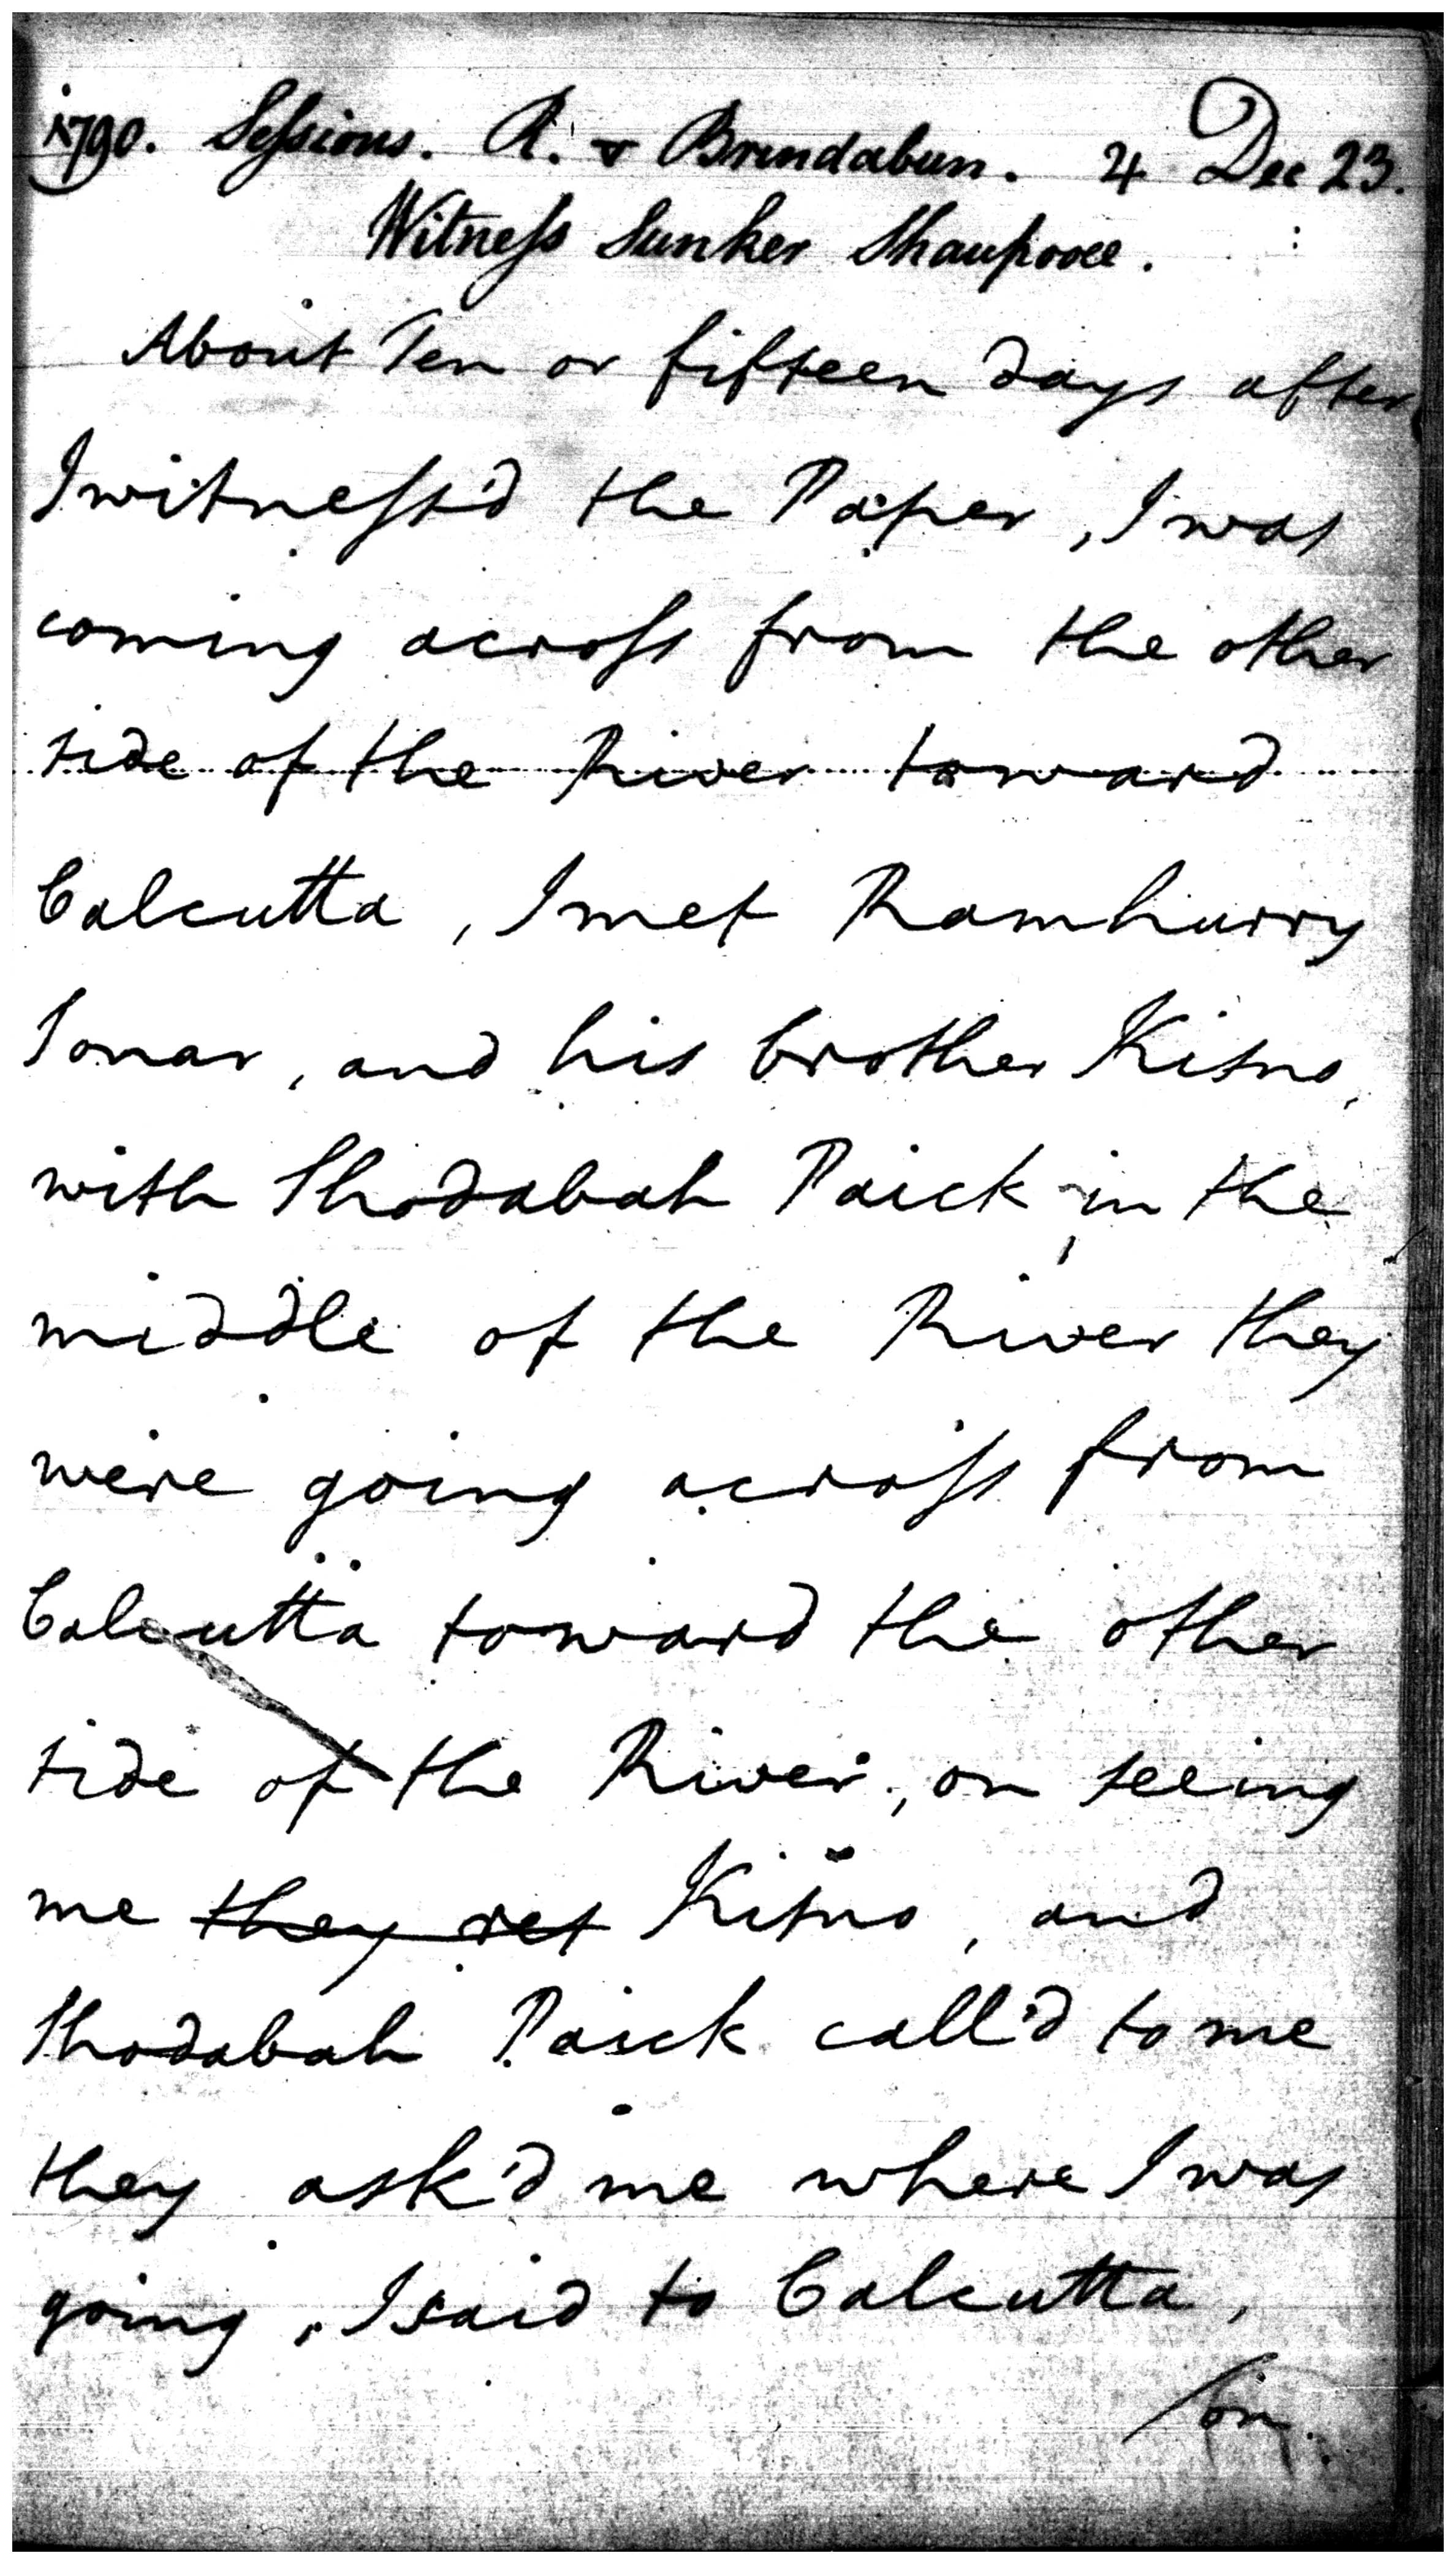 1790. Sessions. R. v Brindabun. 4 Dec 23.
Witness Sunker Shaupooee.
About Ten or fifteen days after
I witness'd the Paper, I was
coming across from the other
side of the River toward
Calcutta, I met Ramhurry
Sonar, and his brother Kisno,
with Shodabah Paick in the
middle of the River they
were going across from
Calcutta toward the other
side of the River, on seeing
me they ret Kisno, and
Shodabah Paick call'd to me
they ask'd me where I was
going, I said to Calcutta,